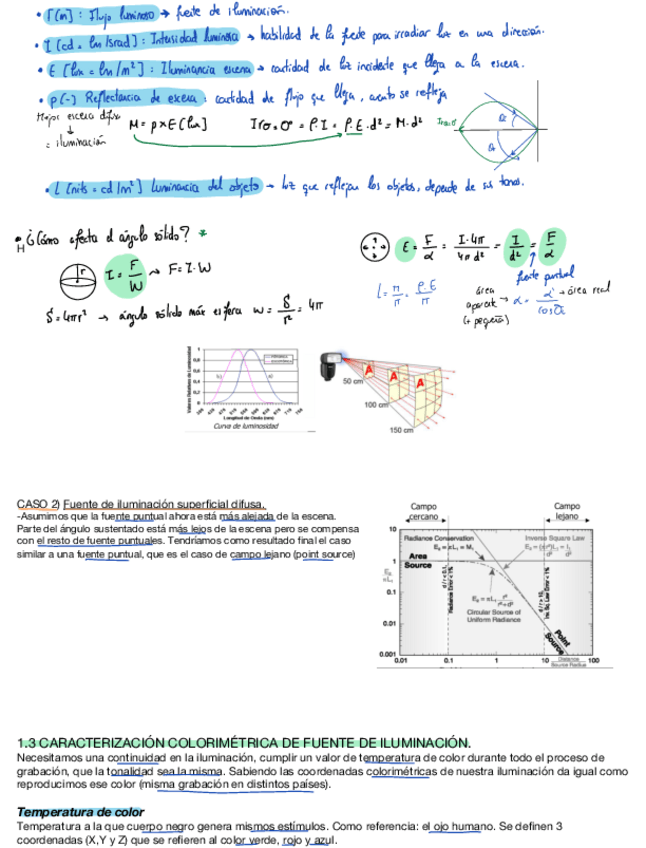 • F [lm] : Flujo luminoso → fuente de iluminación.
• I [cd = lm/srad] : Intensidad luminosa → habilidad de la fuente para irradiar luz en una dirección.
• E [lux = lm/m²] : Iluminancia escena → cantidad de luz incidente que llega a la escena.
• ρ(-) Reflectancia de escena : cantidad de flujo que llega, cuánto se refleja
Mejor escena difusa
↓
= iluminación
M = ρ x E [lux]
= ρ.I = ρ.E.d² = M.d²
• L [nits = cd/m²] Luminancia del objeto → luz que reflejan los objetos, depende de sus tonos.
• ¿Cómo afecta el ángulo sólido? *
r
I = F/W → F = I·W
S = 4πr² → ángulo sólido máx esfera w = S/r² = 4π
E = F/α = I·4π/4πd² = I/d² = F/α
fuente puntual
L = M/π = ρ.E/π
área aparente (+ pequeña) → α = α'/cosθ → área real
Valores Relativos de Luminosidad
1
0,8
0,6
0,4
0,2
0
b)
a)
Longitud de Onda (nm)
Curva de luminosidad
A
A
A
50 cm
100 cm
150 cm
CASO 2) Fuente de iluminación superficial difusa.
-Asumimos que la fuente puntual ahora está más alejada de la escena.
Parte del ángulo sustentado está más lejos de la escena pero se compensa
con el resto de fuente puntuales. Tendríamos como resultado final el caso
similar a una fuente puntual, que es el caso de campo lejano (point source)
Campo cercano
Campo lejano
Radiance Conservation
Inverse Square Law
Area Source
Circular Source of
Uniform Radiance
Point Source
10
1
0.1
0.01
0.001
0.01
0.1
1
10
100
Distance
Source Radius
1.3 CARACTERIZACIÓN COLORIMÉTRICA DE FUENTE DE ILUMINACIÓN.
Necesitamos una continuidad en la iluminación, cumplir un valor de temperatura de color durante todo el proceso de
grabación, que la tonalidad sea la misma. Sabiendo las coordenadas colorimétricas de nuestra iluminación da igual como
reproducimos ese color (misma grabación en distintos países).
Temperatura de color
Temperatura a la que cuerpo negro genera mismos estímulos. Como referencia: el ojo humano. Se definen 3
coordenadas (X,Y y Z) que se refieren al color verde, rojo y azul.